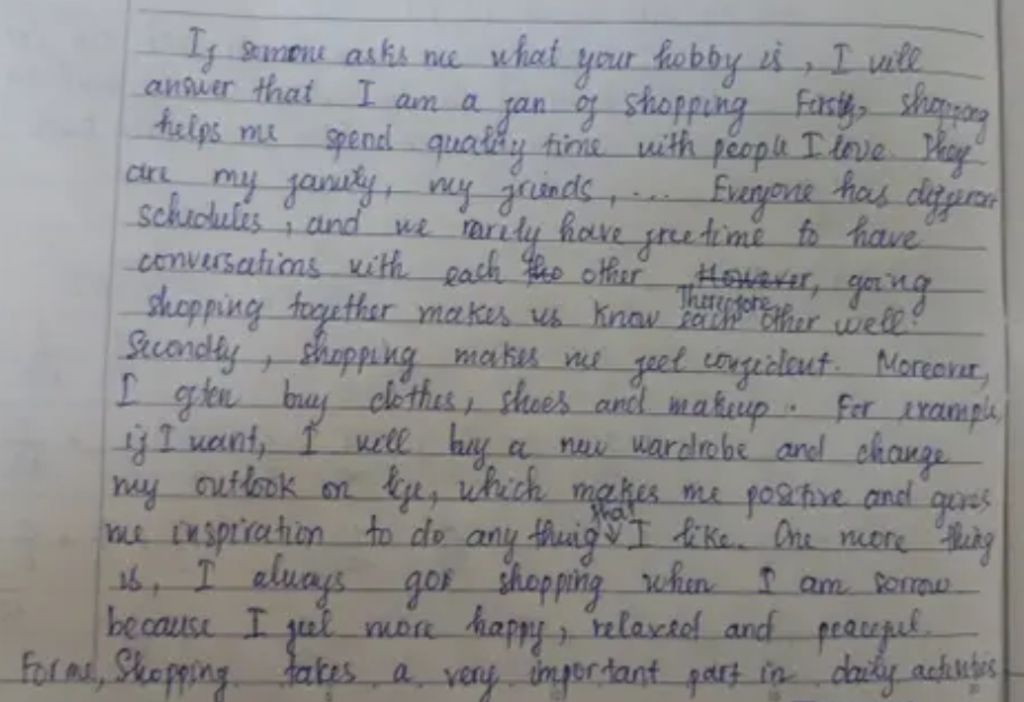 If somone asks me what your hobby is, I will
answer that I am a fan of shopping Firstly, shopping
helps me spend quality time with people I love. They
are my family, my friends, ... Everyone has different
schedules, and we rarely have free time to have
conversations with each the other However, going
Therefore
shopping together makes us know each other well.
Secondly, shopping makes me feel confident. Moreover,
I often buy clothes, shoes and makeup. For example,
if I want, I will buy a new wardrobe and change
my outlook on life, which makes me positive and gives
that
me inspiration to do any thing I like. One more thing
is, I always go shopping when I am sorrow
because I feel more happy, relaxed and peaceful.
For me, Shopping takes a very important part in daily activities